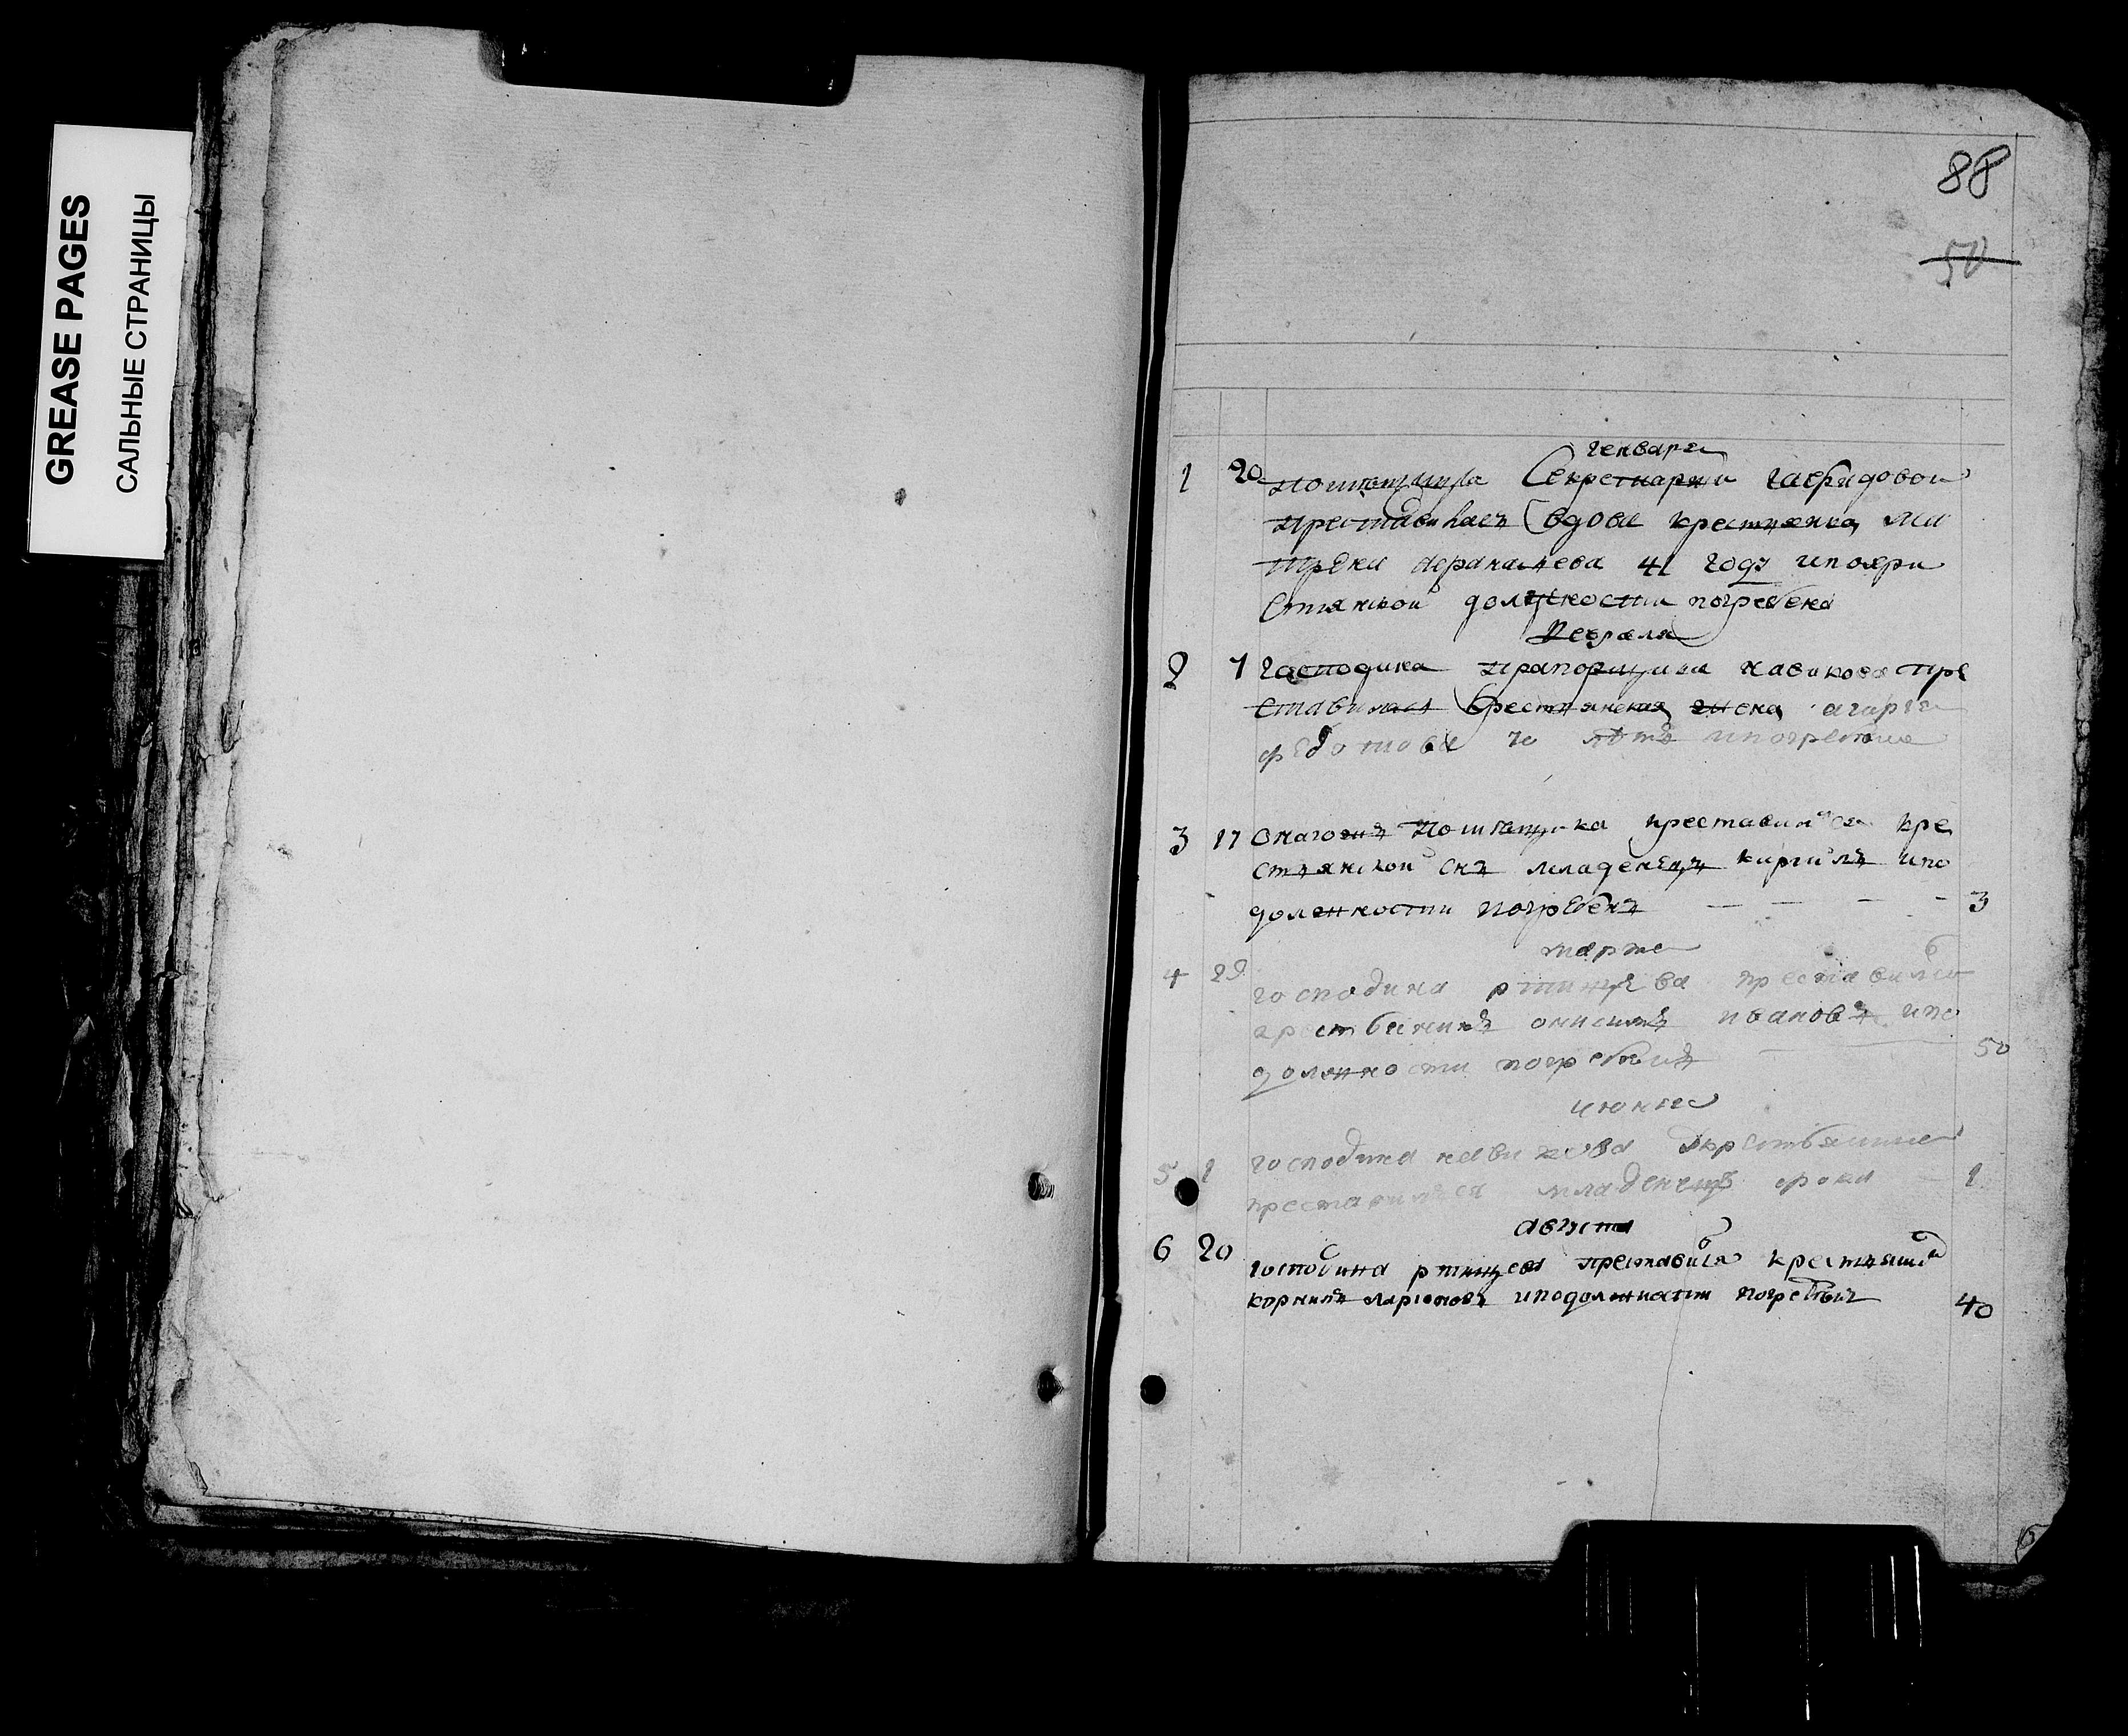 GREASE PAGES
САЛЬНЫЕ СТРАНИЦЫ
88
50
генваря
1 20 помещица Секретарши
преставилась вдова крестьянка ма
трена 41 году и по хри
стианской должности погребена
февраля
2 7 господина прапорщика навикова пре
ставилася крестьянская жена
федотова 70 лѣтъ и погребена
3 17 онагожъ помѣщика преставился кре
стьянской снъ младенецъ кирилъ и по
должности погребенъ 3
марта
4 29 господина ртищева преставился
крестьянинъ анисимъ ивановъ и по
должности погребенъ 50
июня
5 1 господина навикова
преставился младенецъ 1
августа
6 20 господина ртищева преставился крестьянин
корнилъ ларионовъ и по должности погребенъ 40